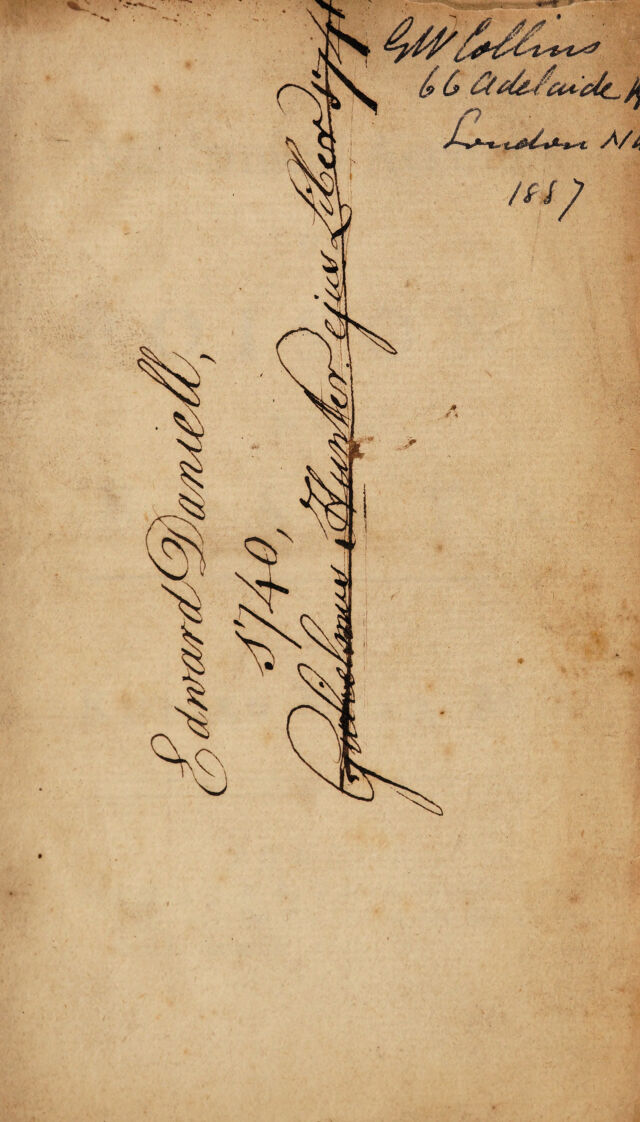 GW Collins
66 Adelaide
London N
1887
Edward Daniell,
1740,
Gulielmus Hunter ejus Liber 174